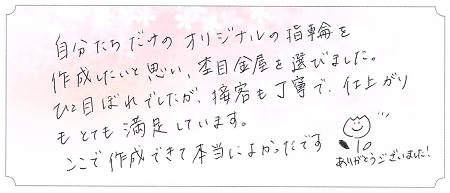 自分たちだけの オリジナルの指輪を
作成したいと思い、杢目金屋を選びました。
ひと目ぼれでしたが、接客も丁寧で、仕上がり
もとても満足しています。
ここで作成できて本当によかったです
ありがとうございました!